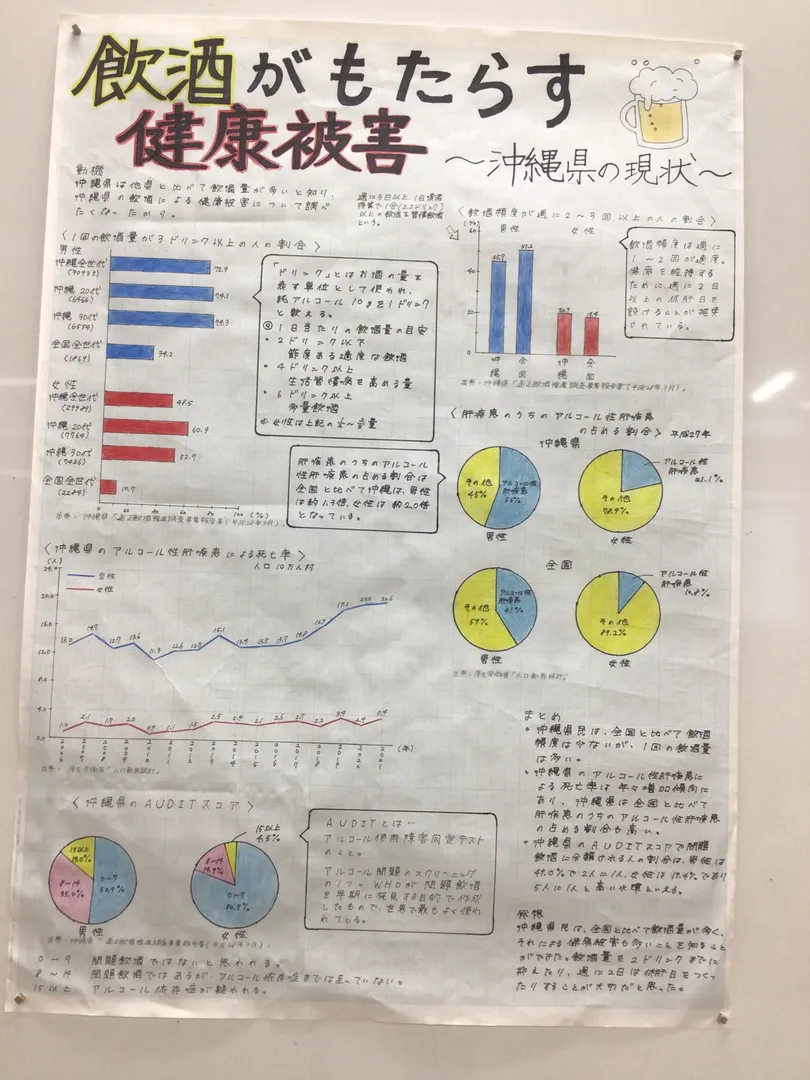 飲酒がもたらす
健康被害
～沖縄県の現状～
動機
沖縄県は他県と比べて飲酒量が多いと知り、
沖縄県の飲酒による健康被害について調べ
たくなったから。
週に3日以上、1日清酒
以上の飲酒を習慣飲酒
という。
〈1回の飲酒量が3ドリンク以上の人の割合〉
男性
沖縄全世代 72.9
沖縄20代
(6466)
沖縄30代 74.3
(6554)
全国全世代 34.2
(1869)
女性
沖縄全世代 48.5
沖縄20代 60.9
(7764)
沖縄30代 52.7
(7426)
全国全世代 10.7
(2284)
0 20 40 60 80 100 (%)
「ドリンク」とはお酒の量を
表す単位として使われ、
純アルコール10gを1ドリンク
と数える。
◎1日当たりの飲酒量の目安
・2ドリンク以下
節度ある適度な飲酒
・4ドリンク以上
生活習慣病を高める量
・6ドリンク以上
多量飲酒
〈飲酒頻度が週に2～3回以上の人の割合〉
(%)
男性 女性
60
40
20
0
沖縄 全国 沖縄 全国
飲酒頻度は週に
1～2回が適度。
健康を維持する
ために、週に2日
以上の休肝日を
設けることが推奨
されている。
肝疾患のうちのアルコール
性肝疾患の占める割合は
全国と比べて沖縄は、男性
は約1.3倍、女性は約2.0倍
となっている。
〈肝疾患のうちのアルコール性肝疾患
の占める割合〉平成27年
沖縄県
その他 45% アルコール性肝疾患 55%
男性
アルコール性肝疾患 21.1%
その他 78.9%
女性
全国
その他 59% アルコール性肝疾患 41%
男性
アルコール性肝疾患 10.8%
その他 89.2%
女性
出典：厚生労働省「人口動態統計」
〈沖縄県のアルコール性肝疾患による死亡率〉
人口10万人対
(人)
24.0
20.0
16.0
12.0
8.0
4.0
0.0
男性
女性
(年)
出典：厚生労働省「人口動態統計」
〈沖縄県のAUDITスコア〉
15以上 14.0%
8～14 35.0%
0～7 50.9%
男性
15以上 4.5%
8～14
0～7 80.9%
女性
AUDITとは…
アルコール使用障害同定テスト
のこと。
アルコール問題のスクリーニング
の1つ。WHOが問題飲酒
を早期に発見する目的で作成
したもので、世界で最もよく使わ
れている。
0～7 問題飲酒ではないと思われる。
8～14 問題飲酒ではあるが、アルコール依存症までは至っていない。
15以上 アルコール依存症が疑われる。
まとめ
・沖縄県民は、全国と比べて飲酒
頻度は少ないが、1回の飲酒量
は多い。
・沖縄県のアルコール性肝疾患に
よる死亡率は年々増加傾向に
あり、沖縄県は全国と比べて
肝疾患のうちのアルコール性肝疾患
の占める割合も高い。
・沖縄県のAUDITスコアで問題
飲酒に分類される人の割合は、男性は
49.0%で2人に1人、女性は19.4%であり
5人に1人と高い水準といえる。
感想
沖縄県民は、全国と比べて飲酒量が多く、
それによる健康被害も多いことを知ること
ができた。飲酒量を2ドリンクまでに
抑えたり、週に2日は休肝日をつくっ
たりすることが大切だと思った。